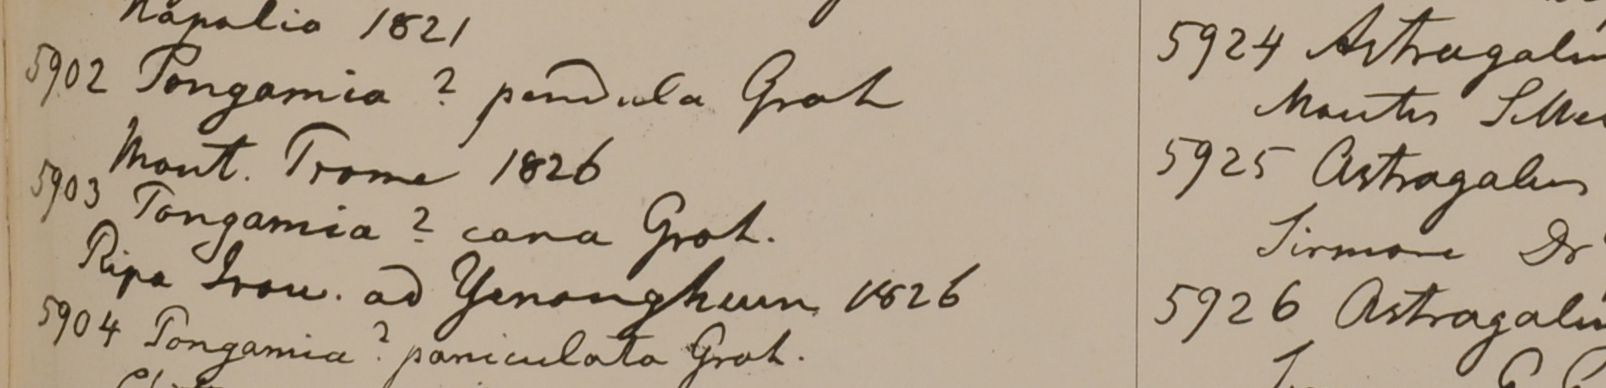 Napalia 1821
5902 Pongamia ? pendula Grah
Mont. Trome 1826
5903 Pongamia ? cana Grah.
Ripa Irow. ad Yenangheun 1826
5904 Pongamia ? paniculata Grah.
5924 Astragalus
Montis
5925 Astragalus
Sirmore Dr
5926 Astragalus